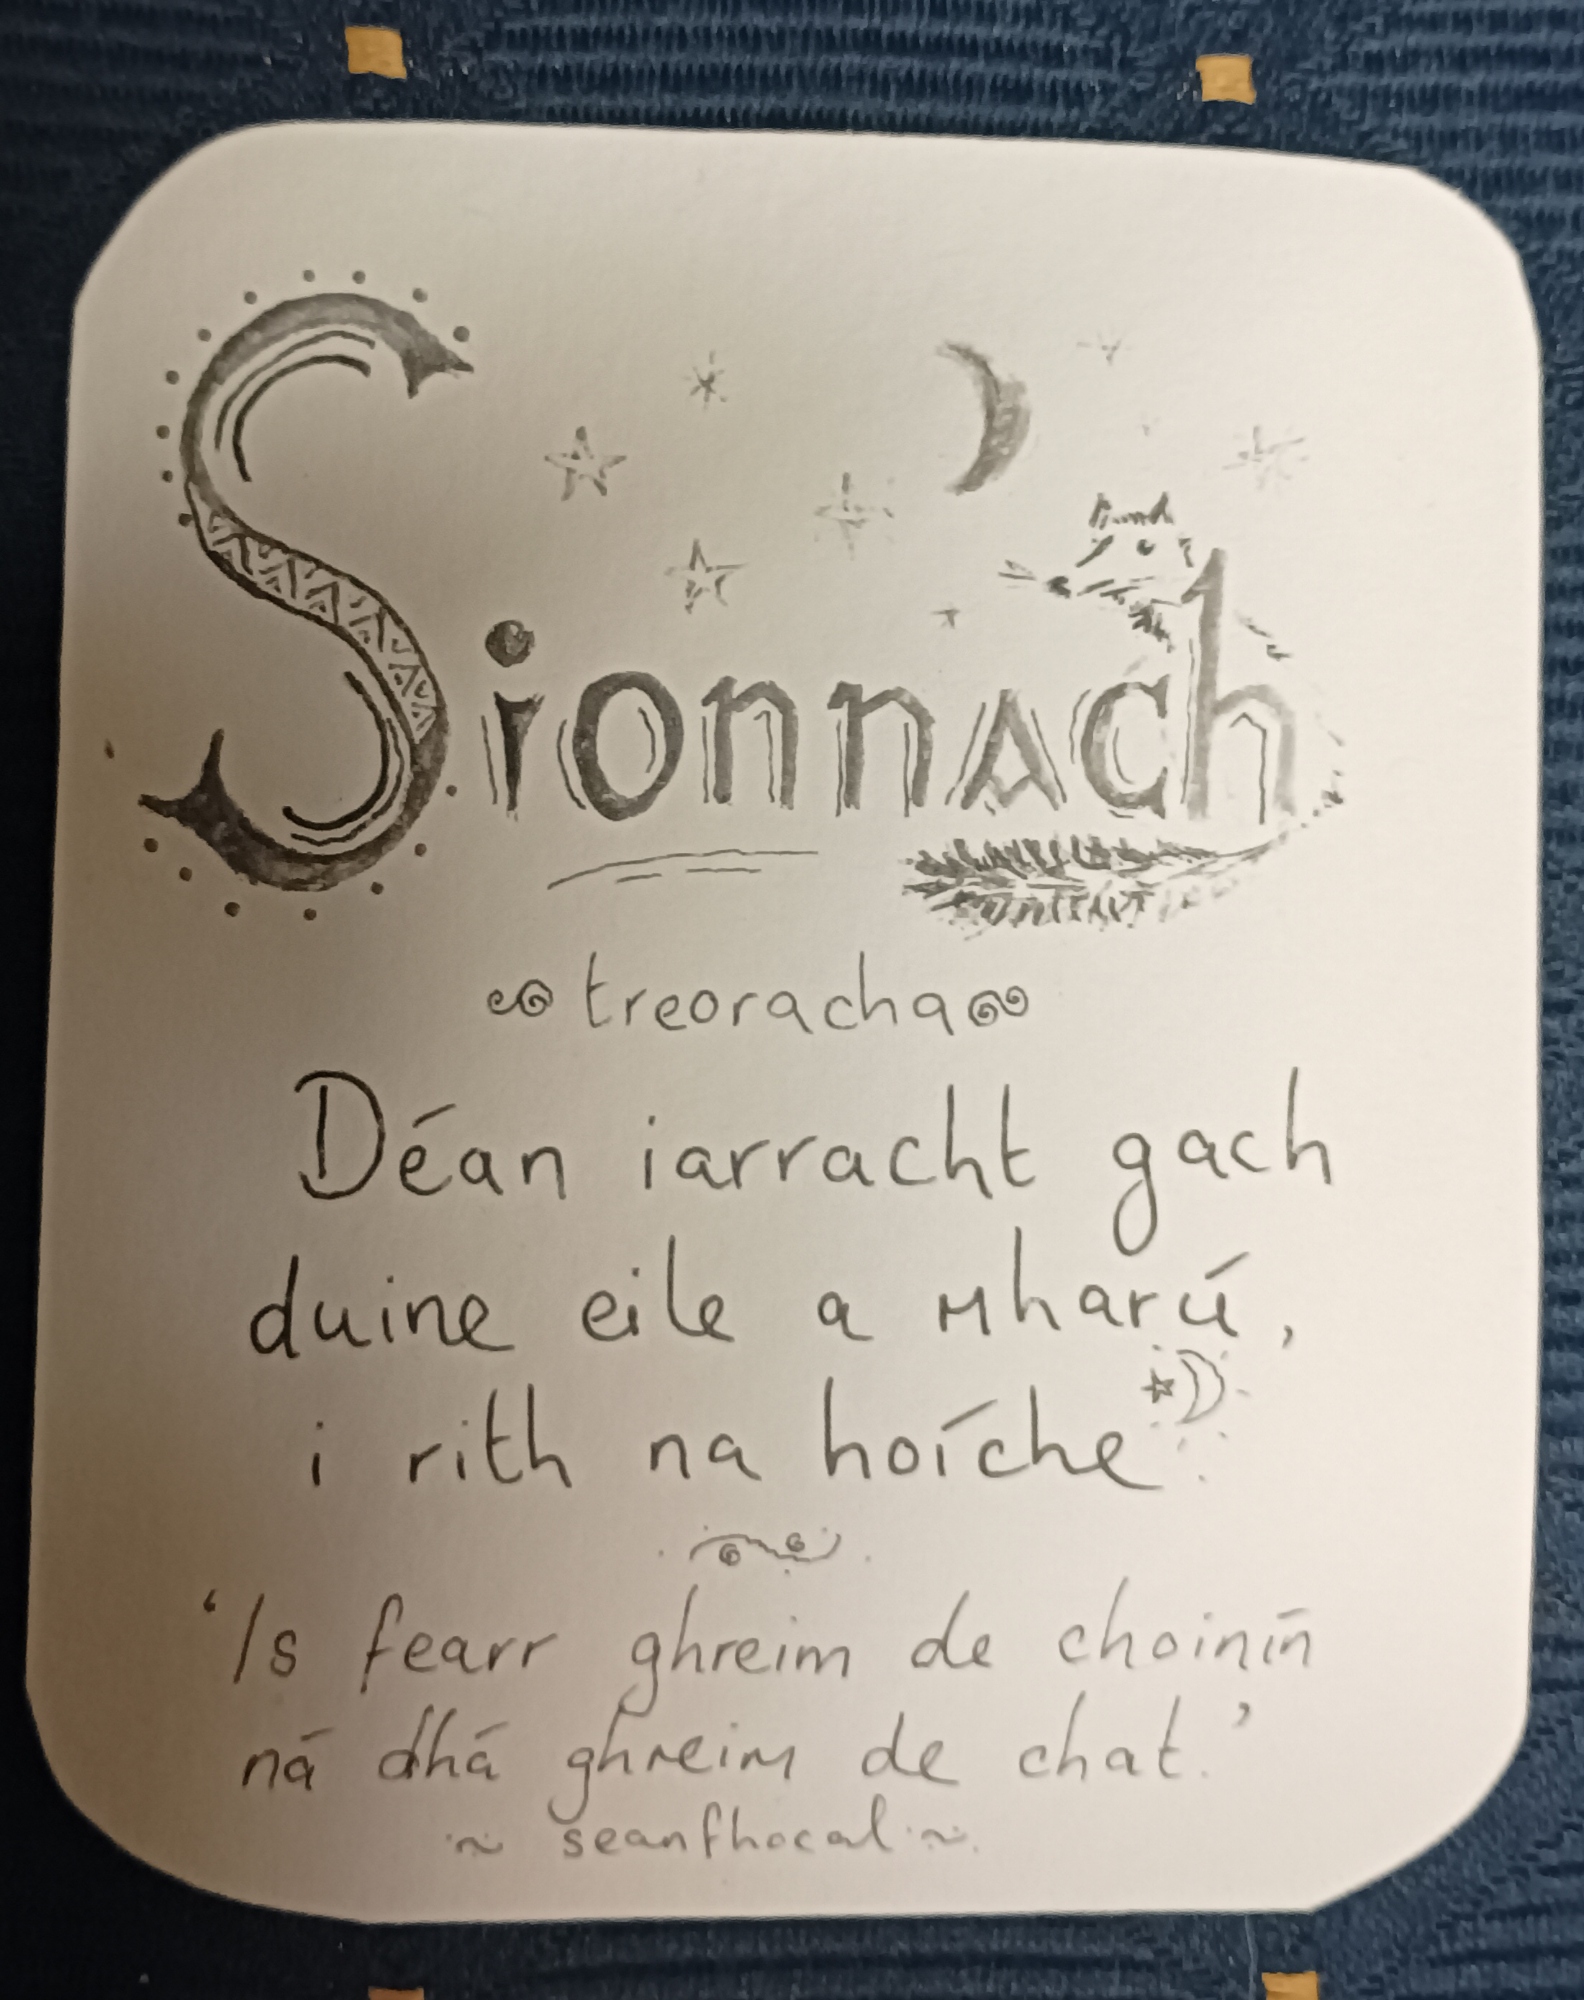 Sionnach
treoracha
Déan iarracht gach
duine eile a mharú,
i rith na hoíche.
'Is fearr ghreim de choinín
ná dhá ghreim de chat.'
~ seanfhocal ~